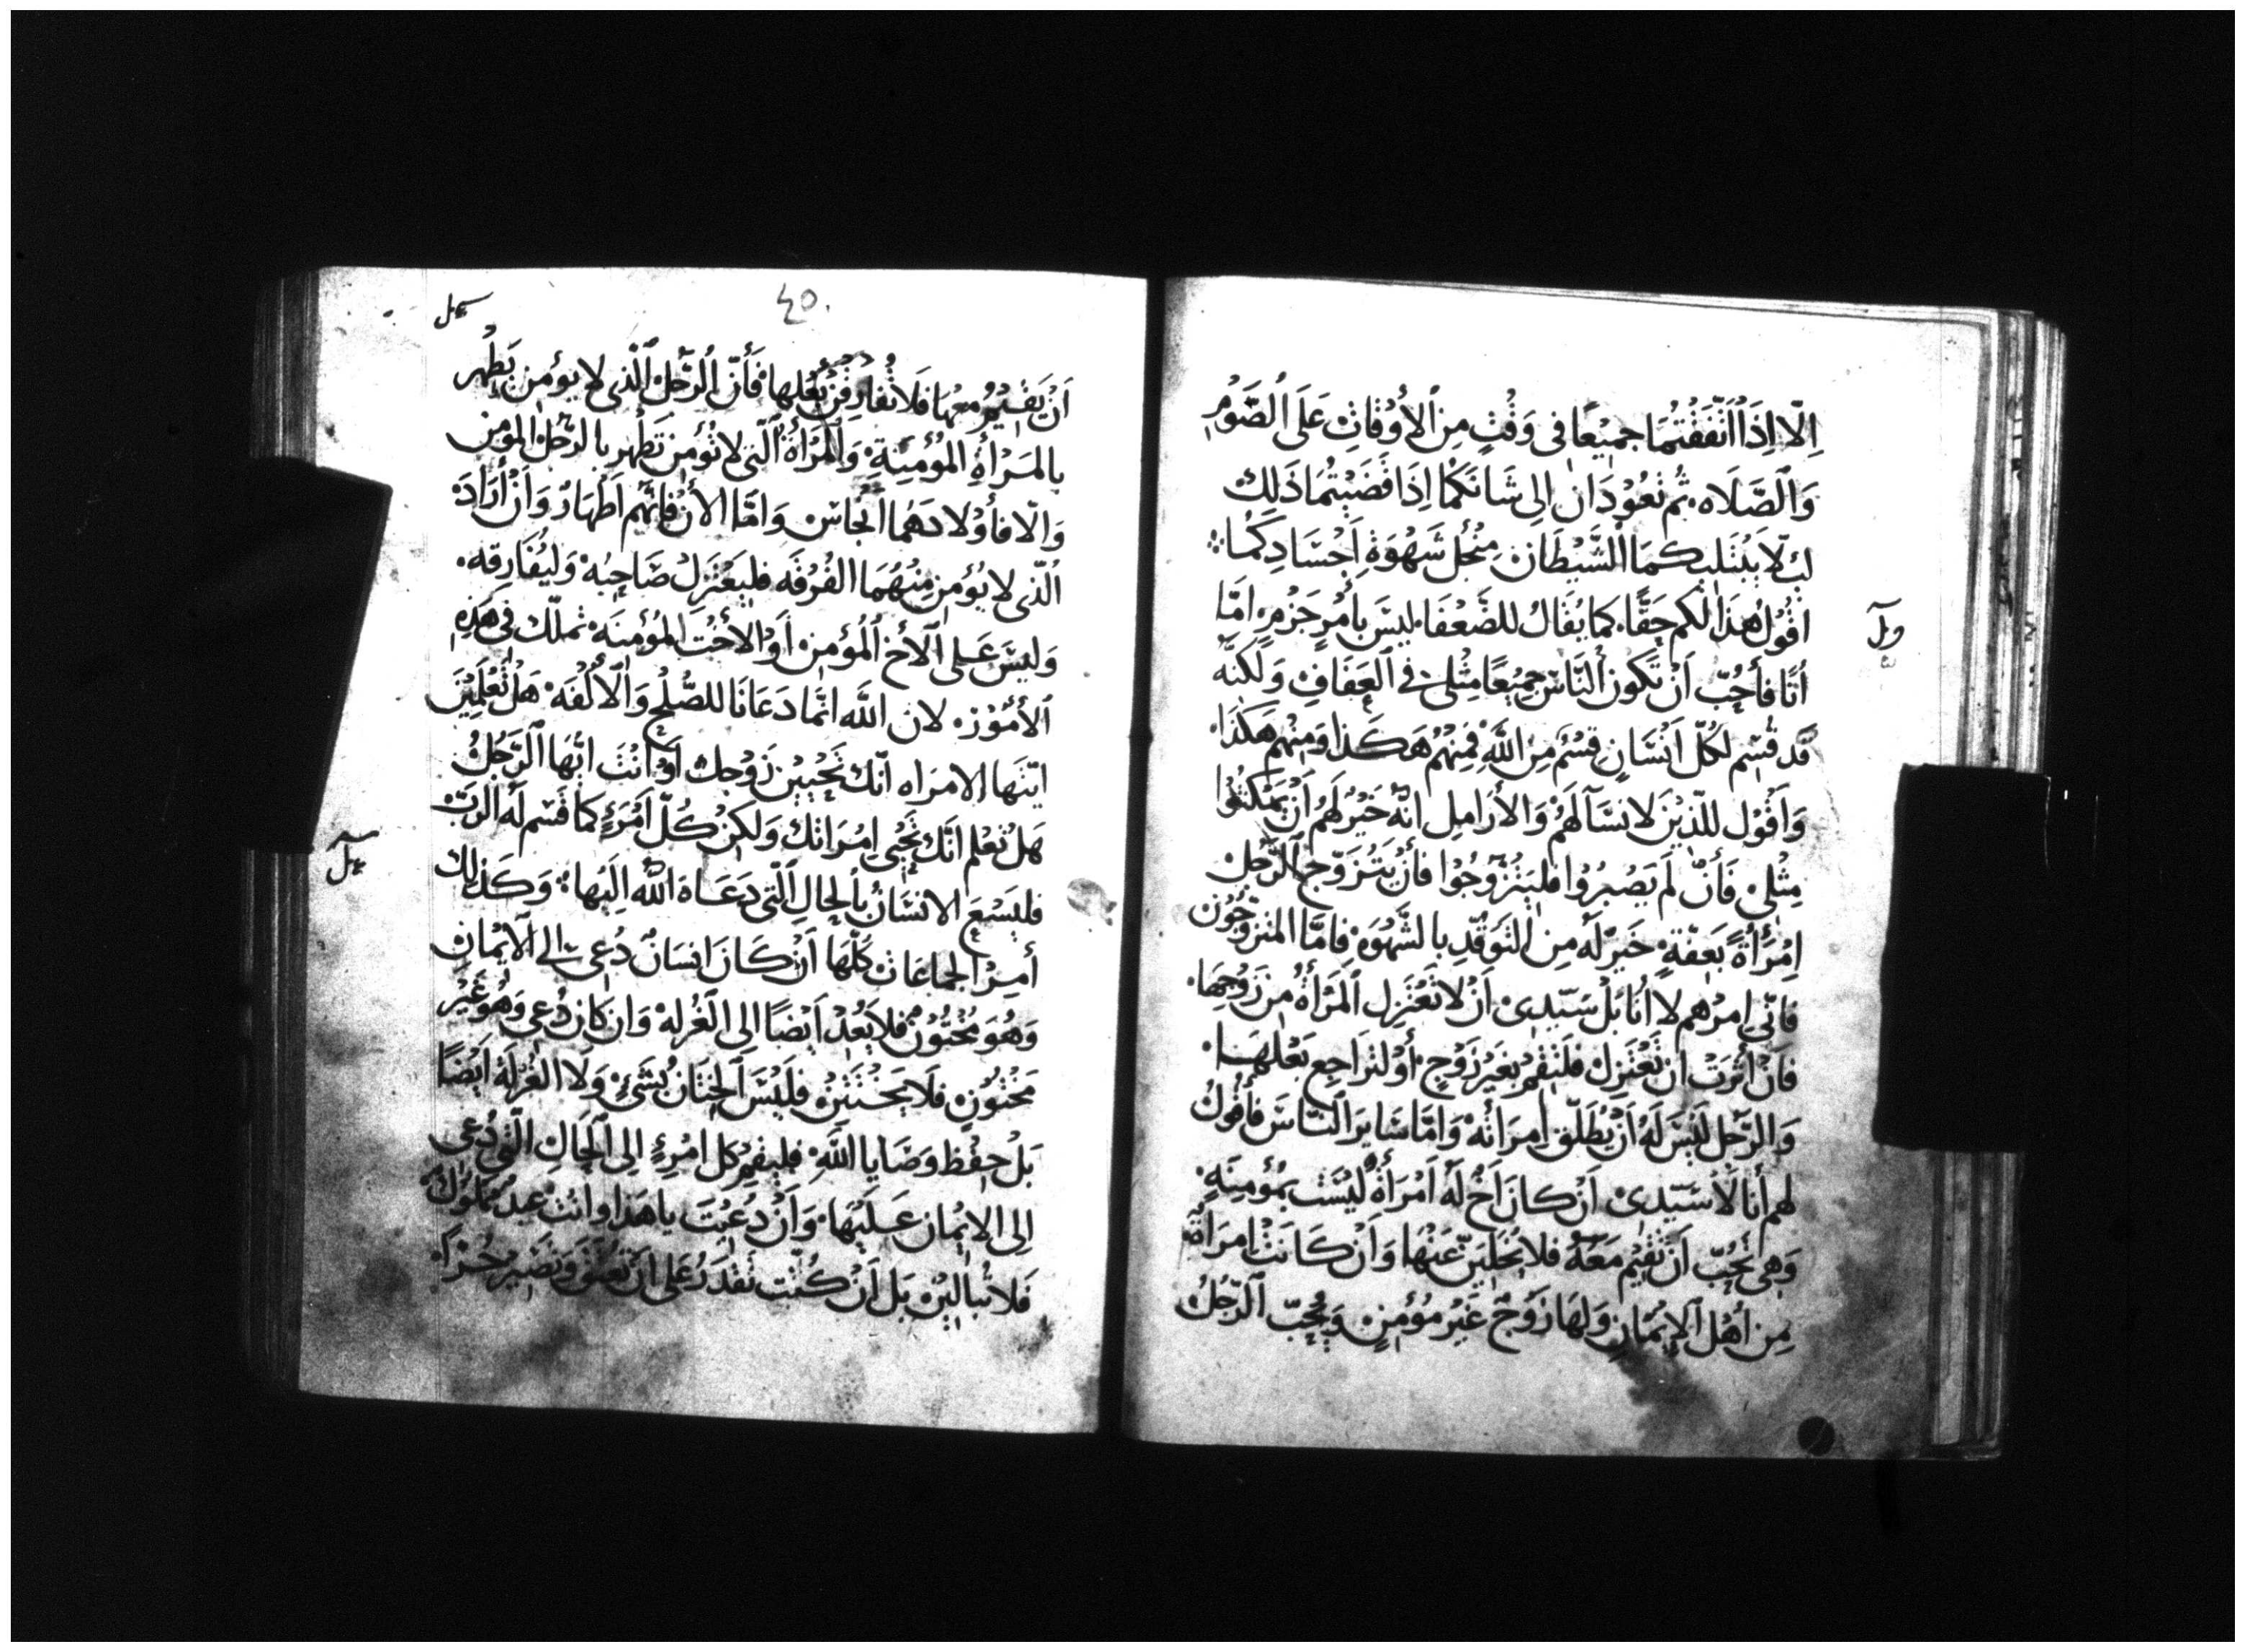 اِلّا اِذَا اتَّفَقْتُمَا جميْعًا فى وَقْتٍ مِن الأَوْقاتِ عَلَى الصَّوْمِ
وَالصَّلاه ثم تعُوْدَان الى شَانكما اِذَا قضَيْتُما ذَلِك
لِئلّا يَبْتَليكمَا الشَّيْطَان مِنْ اجْل شَهْوَةِ اَجْسَادِكُما
اقُوْل هذا لكم حَقًّا كما يُقَالُ للضّعَفَا ليسَ بأمرٍ جَزْمٍ امّا
اَنَا فأحُبّ اَنْ تَكون النَّاسُ جميْعًا مِثْلى فى العَفَافِ وَلكنَّه
قَد قُسِم لكُلّ اَنْسَانٍ قِسْمٌ مِنَ اللَّهِ فمِنْهُم هَكَذا وَمنْهم هكذا
وَاَقْوْل للّذِيْنَ لا نسَآ لَهُمْ وَالأرَامِلِ انّه خَيْرٌ لَهُم اَنْ يَمْكثُوا
مِثْلى فَأنْ لَم يَصْبِرُوا فليَتزَوّجُوْا فأنْ يَتَزَوّج الرّجُلْ
اِمْرَأَةً بعَفّةٍ خَيرٌ لَه مِن التوَقّدِ بالشّهْوَة فامّا المتزوّجُوْن
فانّى امرُهم لا اَنَا بَلْ سَيّدِى اَنْ لا تَعْتَزِل المَرْأةُ مِن زَوْجِهَا
فَاَنْ أثرَتْ ان تَعْتَزِل فلتقمْ بغيْر زَوْجٍ أوْ لتراجع بَعْلهَا
وَالرّجل ليْسَ لَهُ اَنْ يُطَلّق امرَاتهُ وَامّا سَايرَ النّاسَ فأقُوْلُ
لهم أنا لا سَيّدِى اَنْ كانَ اَخٌ لَهُ اَمْرَاةٌ لَيْسَتْ بمُؤمِنَةٍ
وَهى تحُبّ اَنْ تقِيْم مَعَهُ فلا يُخَلّيَنّ عَنْهَا وَاَنْ كَانَتْ امرَاةٌ
مِن اهْل الإيْمَانِ وَلهَا زَوْجٌ غَيْر مُؤْمِنٍ وَيُحبّ الرّجلُ
٤٥
اَنْ يَقيْمُ معهَا فَلا تُفارِقنّ بَعْلها فَأَنّ الرَّجلْ الّذى لا يؤمِن يَطهُر
بالمَرْأةِ المُؤْمِنَة وَالمَرْأةُ الّتى لا تؤْمن تَطْهر بالرّجل المؤمن
وَالّا فأوْلادهُما انجاسٌ وَامّا الان فانّهم اَطهَارٌ وَاَنْ أرَادَ
الّذى لا يُؤمِن مِنْهُمَا الفُرْقَه فليَعْتَزلْ صَاحِبُهُ وَليُفَارِقه
وَليْسَ عَلى الأخ المُؤمِن اَوْ الأخْت المُؤمِنَه تملّك فى هَذِه
الأُمُوْر لان اللَّه انّما دَعَانَا للصُّلْح وَالأُلْفَه هَلْ تَعْلَمِيْنَ
ايّتهَا الامرَاه انّك تُحْيِيْن زَوْجك اَوْ انْتَ ايّهَا الرّجُلُ
هَلْ تعْلم انّك تُحْيى امْرَاتك وَلكِنْ كُلّ اَمْرَءٍ كَما قَسَم لَه الرّبّ
فليَسْعَ الانسَان بالحالِ الّتى دَعَاهَ اللَّه الَيْها وَكَذلك
أمِرْ الجماعَات كُلّهَا اَنْ كَانَ انسَانٌ دُعى الى الايْمَان
وَهُوَ مَخْتُوْن فلا يَعُدْ اَيْضًا الى الغُرْلهْ وَان كان دُعى وَهُوَ غَيْر
مَخْتُوْنٍ فلا يَخْتَتِنْ فلَيْسَ الخِتَان بشَىْءٍ وَلَا الغُرْلَة اَيْضًا
بَلْ حِفْظ وَصَايا اللَّهِ فليقمْ كل امْرِءٍ الى الحَالِ الّتى دُعِى
اِلى الايْمَان عَلَيْهَا وَاَنْ دُعِيْتَ ياهَذا وانتْ عبدٌ مملوك
فَلا تُبالِيْن بَل اَنْ كُنْت تقدَرُ عَلى ان تُعتَق وَتَصِيْرُ حُرّا